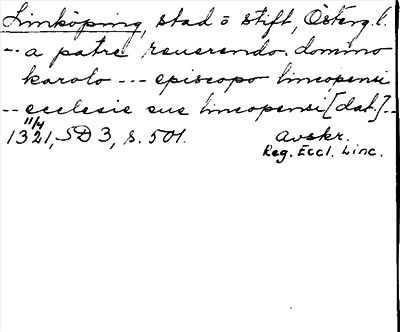 Linköping, stad o stift, Österg. l.
-- a patre reuerendo. domino
karolo --- episcopo lincopensi
-- ecclesie sue lincopensi [dat.] --
1321, 11/4 SD 3, s. 501. Avskr.
Reg. Eccl. Linc.